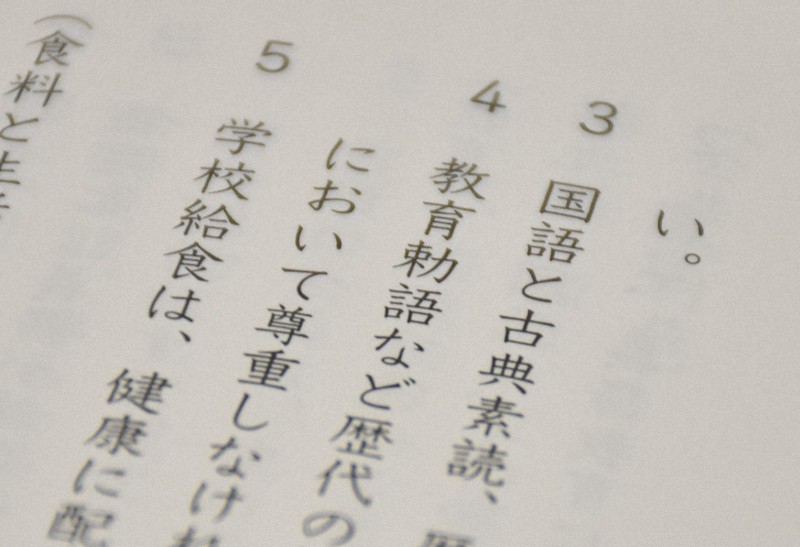 い。
3 国語と古典素読、歴
4 教育勅語など歴代の
において尊重しなけれ
5 学校給食は、健康に配
(食料と生